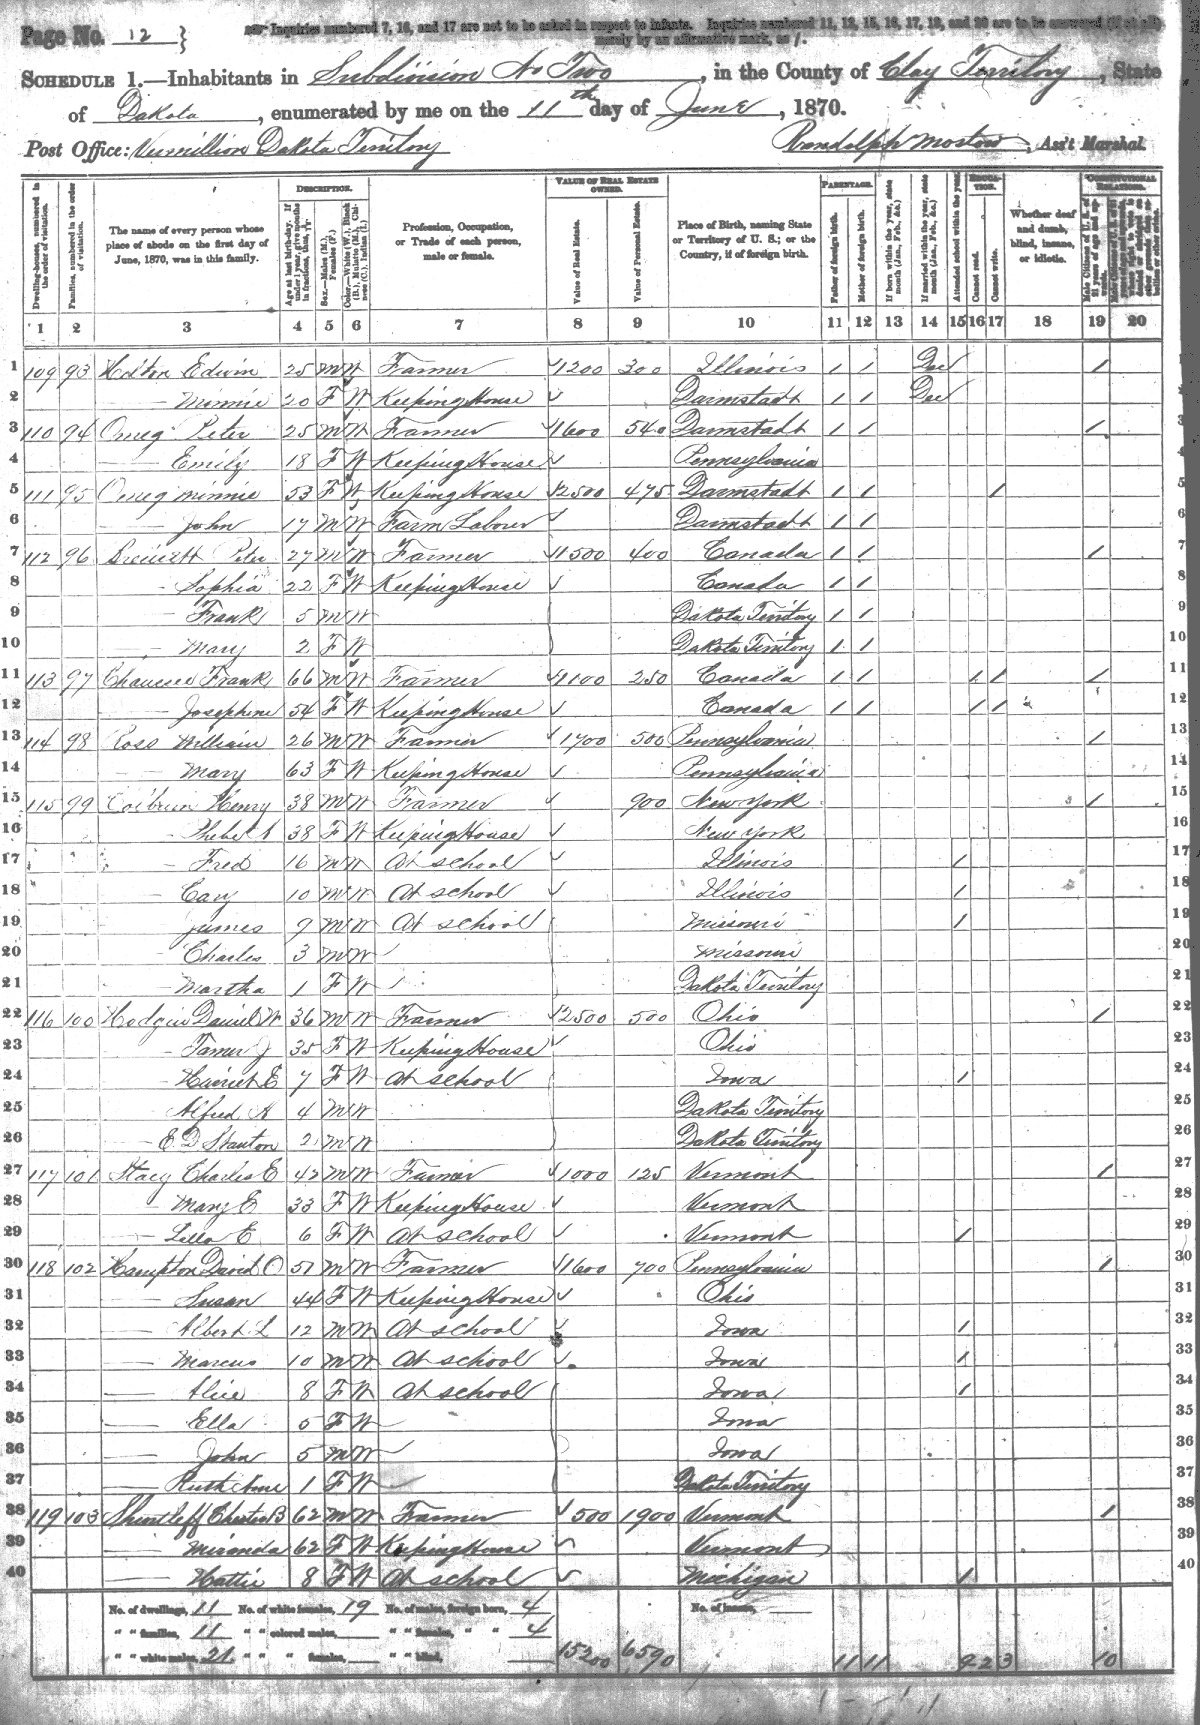 Page No. 12
Inquiries numbered 7, 16, and 17 are not to be asked in respect to infants. Inquiries numbered 11, 12, 15, 16, 17, 19, and 20 are to be answered (if at all) merely by an affirmative mark, as /.
SCHEDULE 1.—Inhabitants in Subdivision No Two, in the County of Clay Territory, State
of Dakota, enumerated by me on the 11th day of June, 1870.
Post Office: Vermillion Dakota Territory Randolph Mostow, Ass't Marshal.
Dwelling-houses, numbered in the order of visitation.
Families, numbered in the order of visitation.
The name of every person whose place of abode on the first day of June, 1870, was in this family.
DESCRIPTION.
Age at last birth-day. If under 1 year, give months in fractions, thus,
Sex.—Males (M.), Females (F.)
Color.—White (W.), Black (B.), Mulatto (M.), Chinese (C.), Indian (I.)
Profession, Occupation, or Trade of each person, male or female.
VALUE OF REAL ESTATE OWNED.
Value of Real Estate.
Value of Personal Estate.
Place of Birth, naming State or Territory of U. S.; or the Country, if of foreign birth.
PARENTAGE.
Father of foreign birth.
Mother of foreign birth.
If born within the year, state month (Jan., Feb., &c.)
If married within the year, state month (Jan., Feb., &c.)
EDUCATION.
Attended school within the year.
Cannot read.
Cannot write.
Whether deaf and dumb, blind, insane, or idiotic.
CONSTITUTIONAL RELATIONS.
Male Citizens of U. S. of 21 years of age and upwards.
1 2 3 4 5 6 7 8 9 10 11 12 13 14 15 16 17 18 19 20
1 109 93 Edwin 25 M W Farmer 1200 300 Illinois / / Dec / 1
2 — Minnie 20 F W Keeping House Darmstadt / / Dec 2
3 110 94 Omeg Peter 25 M W Farmer 1600 540 Darmstadt / / / 3
4 — Emily 18 F W Keeping House Pennsylvania 4
5 111 95 Omeg Minnie 53 F W Keeping House 2500 475 Darmstadt / / / 5
6 — John 17 M W Farm Laborer Darmstadt / / 6
7 112 96 Peter 27 M W Farmer 1500 400 Canada / / / 7
8 — Sophia 22 F W Keeping House Canada / / 8
9 — Frank 5 M W Dakota Territory / / 9
10 — Mary 2 F W Dakota Territory / / 10
11 113 97 Frank 66 M W Farmer 1100 250 Canada / / / / / 11
12 — Josephine 54 F W Keeping House Canada / / / / 12
13 114 98 Ross William 26 M W Farmer 1700 500 Pennsylvania / 13
14 — Mary 63 F W Keeping House Pennsylvania 14
15 115 99 Henry 38 M W Farmer 900 New York / 15
16 — Phebe A 38 F W Keeping House New York 16
17 — Fred 16 M W At school Illinois / 17
18 — Cary 10 M W At school Illinois / 18
19 — James 9 M W At school Missouri / 19
20 — Charles 3 M W Missouri 20
21 — Martha 1 F W Dakota Territory 21
22 116 100 Hodgin Daniel W 36 M W Farmer 2500 500 Ohio / 22
23 — Tamer J 35 F W Keeping House Ohio 23
24 — Harriet E 7 F W At school Iowa / 24
25 — Alfred A 4 M W Dakota Territory 25
26 — E. D Stanton 2 M W Dakota Territory 26
27 117 101 Stacy Charles E 42 M W Farmer 1000 125 Vermont / 27
28 — Mary E 33 F W Keeping House Vermont 28
29 — Lilla E 6 F W At school Vermont / 29
30 118 102 Hampton David O 51 M W Farmer 1600 700 Pennsylvania / 30
31 — Susan 44 F W Keeping House Ohio 31
32 — Albert L 12 M W At school Iowa / 32
33 — Marcus 10 M W At school Iowa / 33
34 — Alice 8 F W At school Iowa / 34
35 — Ella 5 F W Iowa 35
36 — John 5 M W Iowa 36
37 — 1 F W Dakota Territory 37
38 119 103 Shurtleff Chester B 62 M W Farmer 500 1900 Vermont / 38
39 — Miranda 62 F W Keeping House Vermont 39
40 — Hattie 8 F W At school Michigan / 40
No. of dwellings, 11 No. of white females, 19 No. of males, foreign born, 4 No. of insane,
" " families, 11 " " colored males, " " females, " " 4
" " white males, 21 " " females, " " blind, 15200 6590 11 11 9 2 3 10